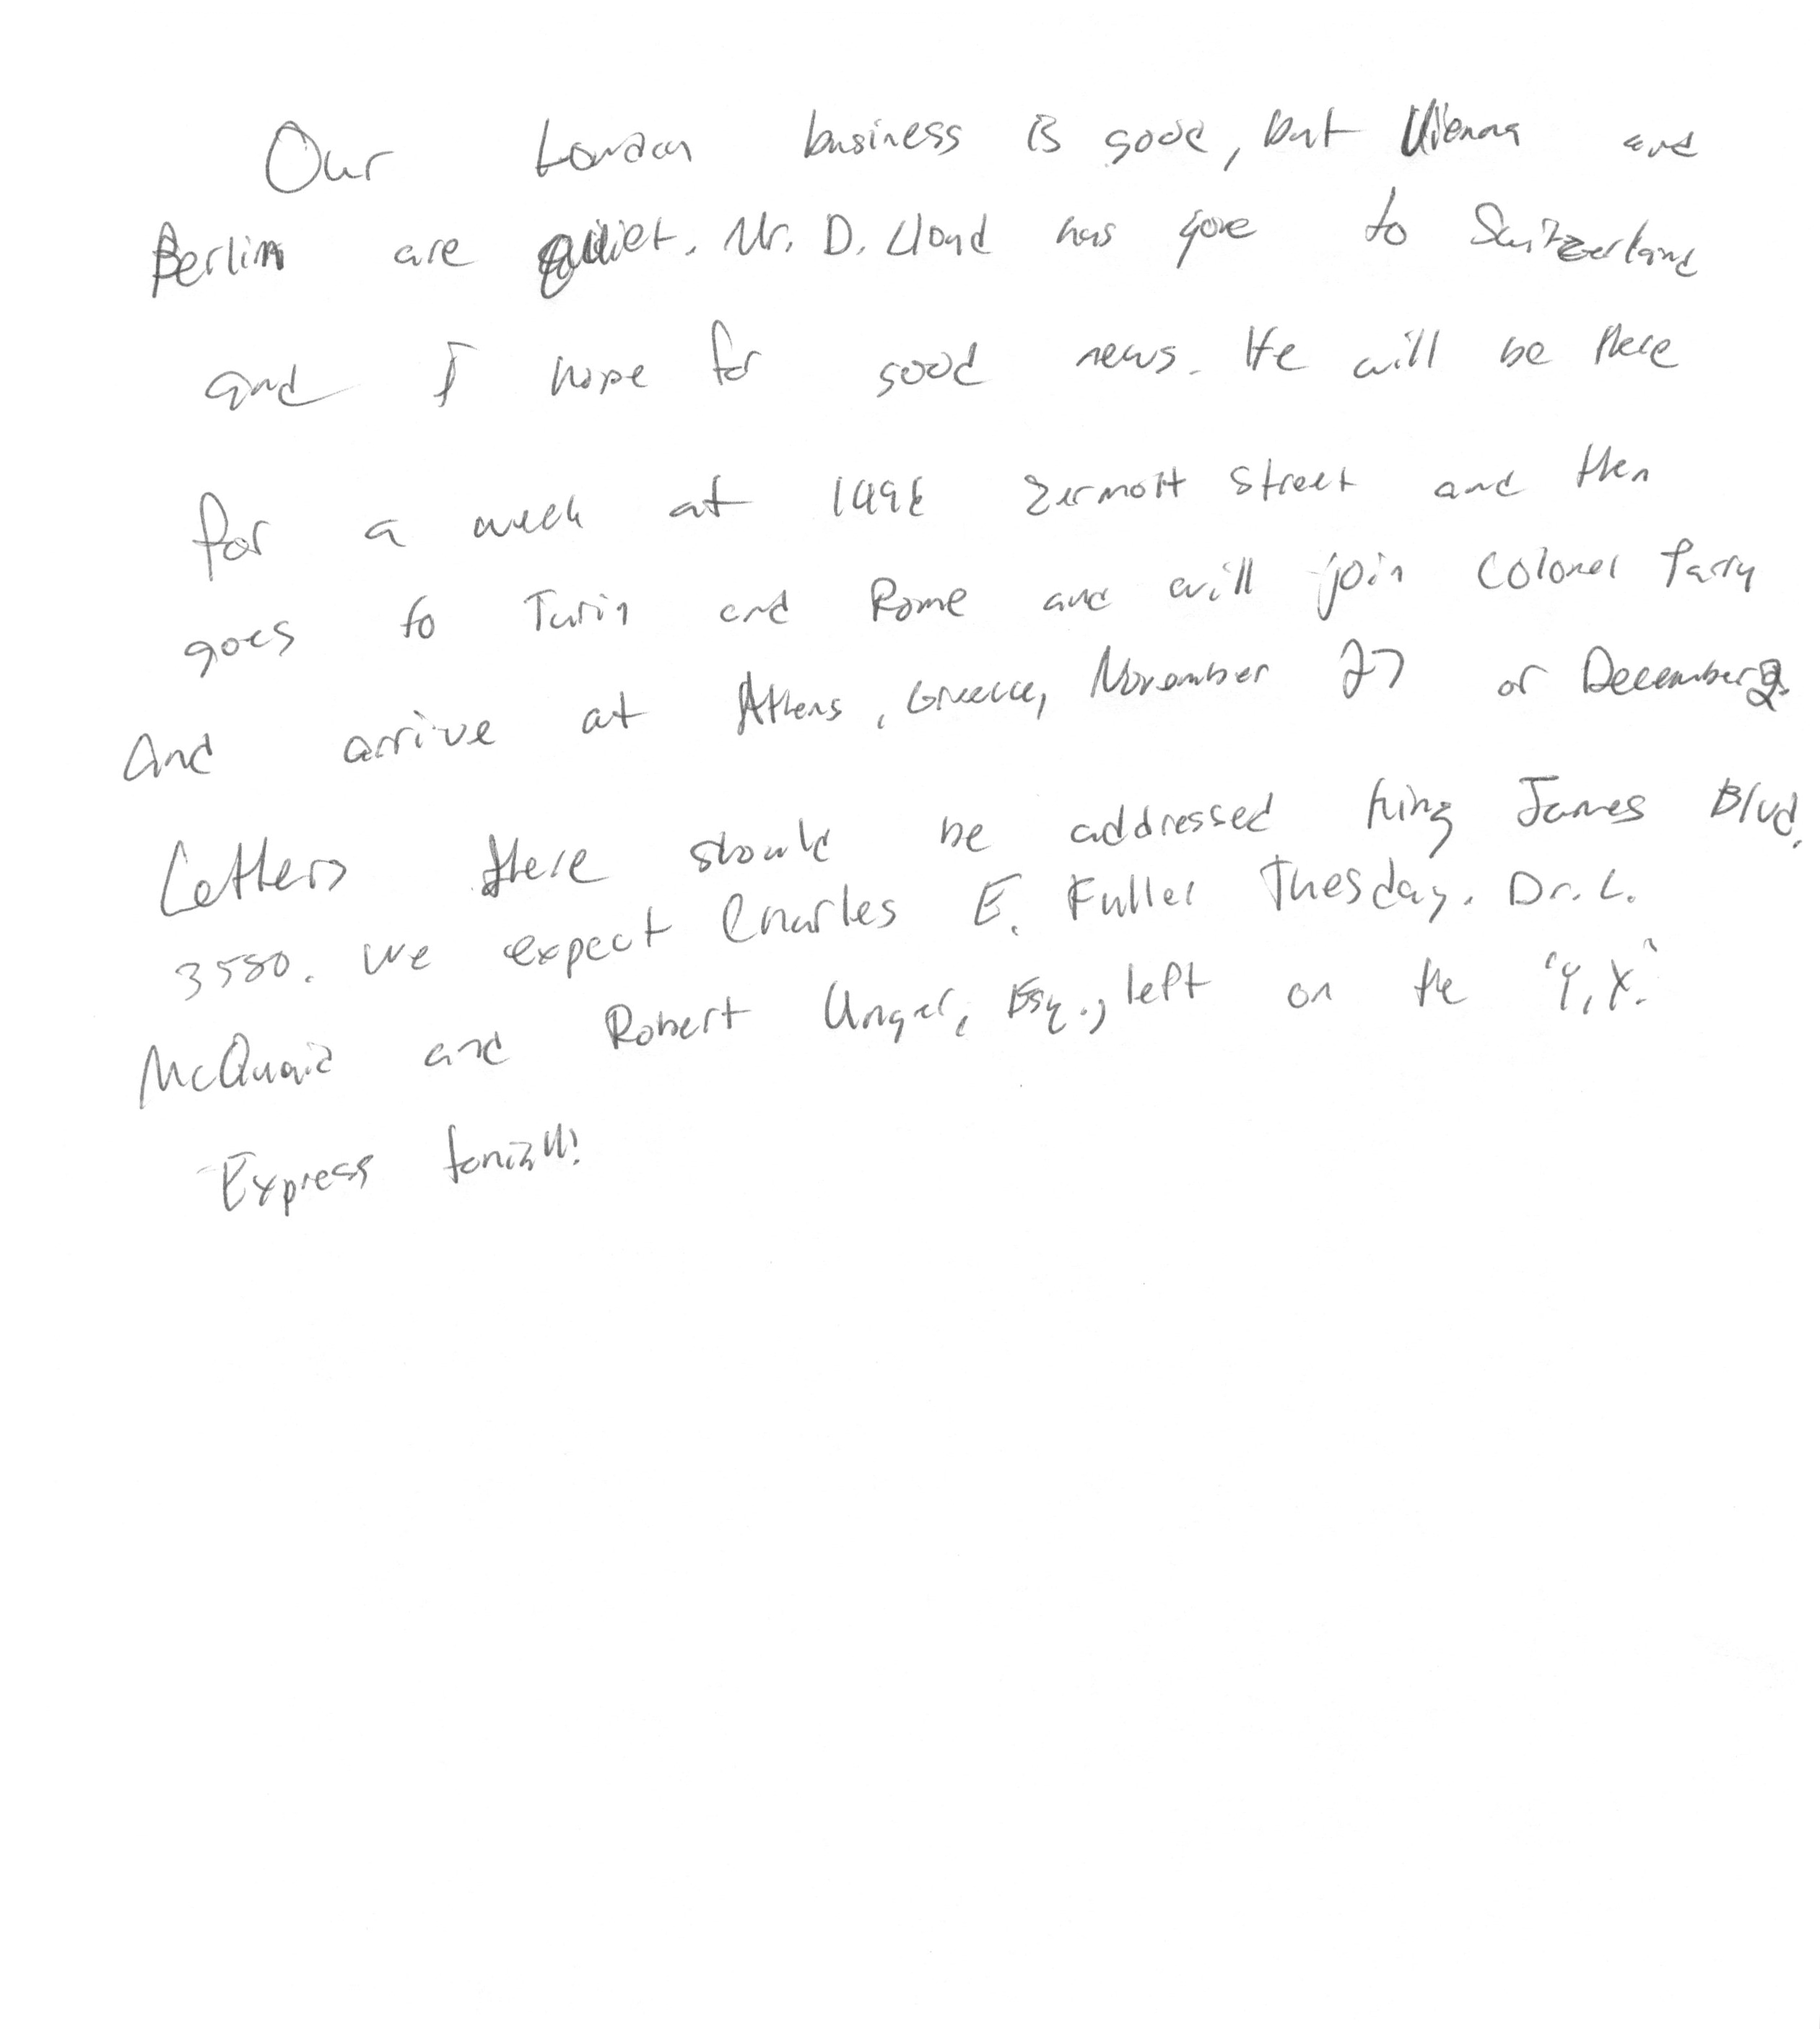 Our London business is good, but Vienna and
Berlin are quiet. Mr. D. Lloyd has gone to Switzerland
and I hope for good news. He will be there
for a week at 1496 Zermott Street and then
goes to Turin and Rome and will join Colonel Parry
and arrive at Athens, Greece, November 27 or December 2.
Letters there should be addressed King James Blvd.
3580. We expect Charles E. Fuller Tuesday. Dr. L.
McQuaid and Robert Unger, Esq., left on the "Y.X."
Express tonight!